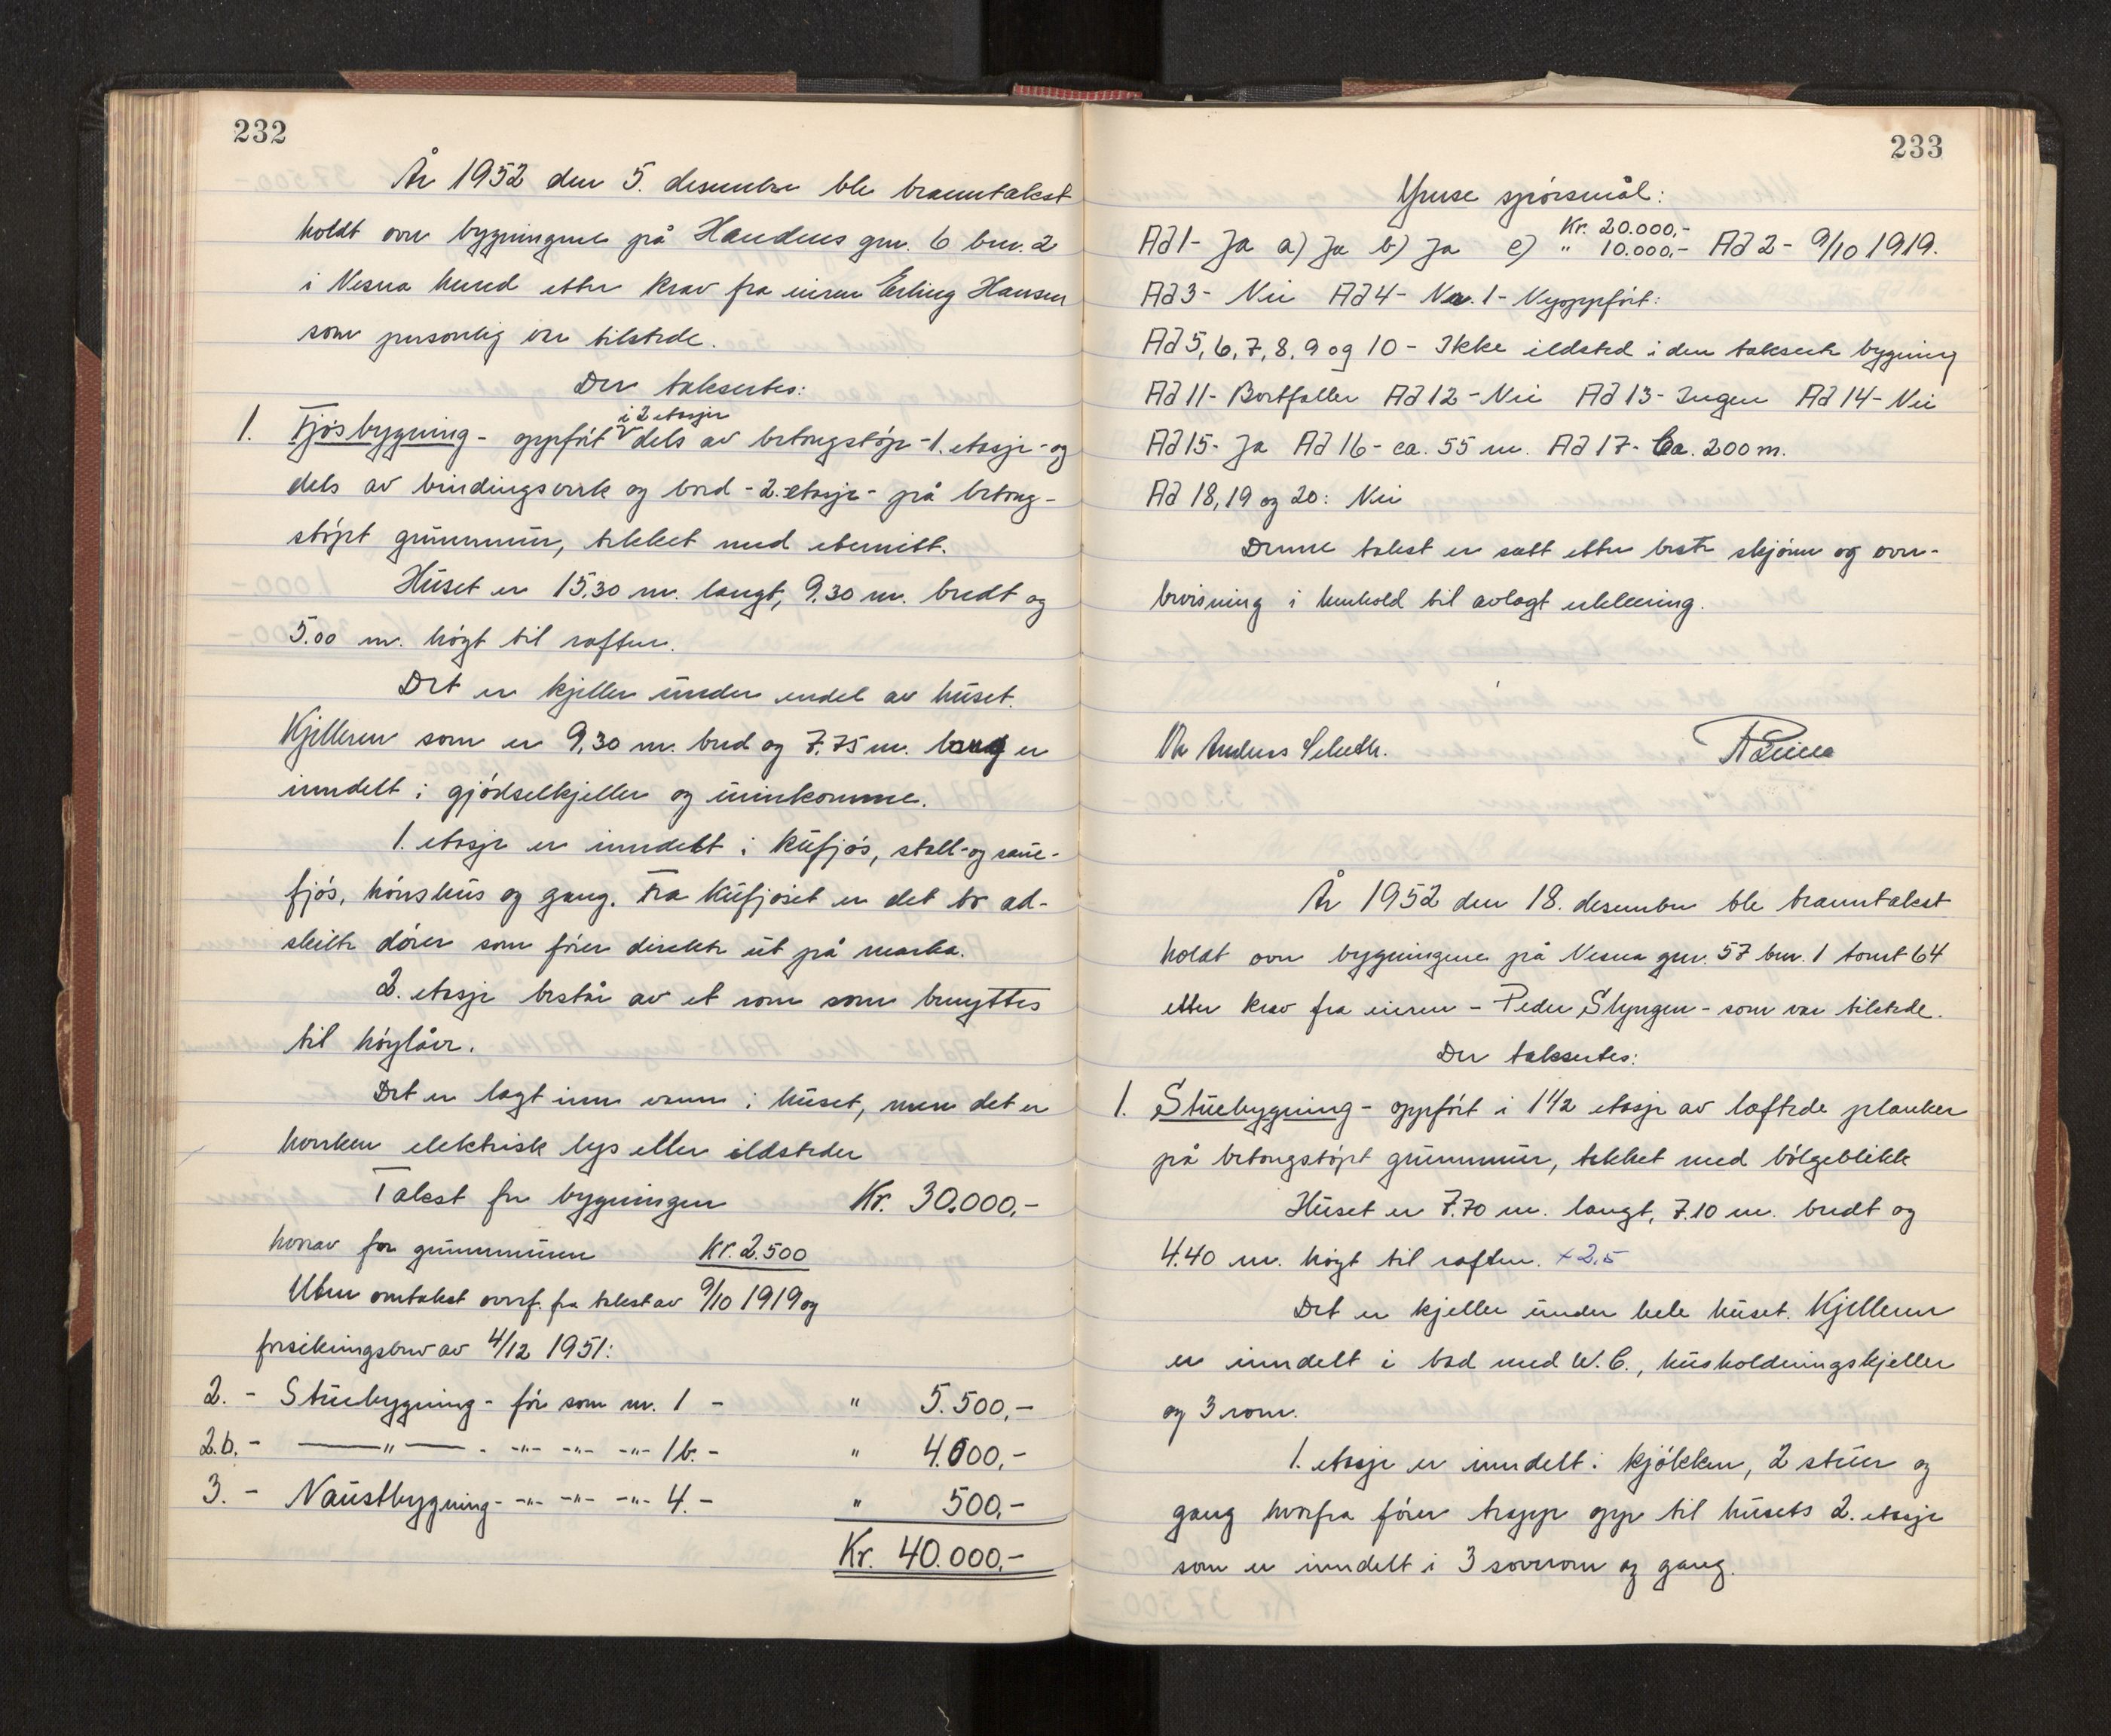 232
År 1952 den 5. desember ble branntakst
holdt over bygningene på Handnes gnr. 6 bnr. 2
i Nesna herred etter krav fra eieren Erling Hansen
som personlig var tilstede.
Der taksertes:
i 2 etasjer
1. Fjösbygning - oppfört V dels av betongstöpe - 1. etasje - og
dels av bindingsverk og bord - 2. etasje - på betong-
stöpt grunnmur, tekket med eternitt.
Huset er 15,30 m. langt, 9,30 m. bredt og
5.00 m. högt til raften.
Det er kjeller under endel av huset.
Kjelleren som er 9,30 m. bred og 7.75 m. lang er
inndelt i gjödselkjeller og urinkomme.
1. etasje er inndelt i kufjös, stall- og saue-
fjös, hönshus og gang. Fra kufjöset er det to ad-
skilte dörer som förer direkte ut på marka.
2. etasje består av et rom som benyttes
til höylåve.
Det er lagt inn vann i huset, men det er
hverken elektrisk lys eller ildsteder
Takst for bygningen Kr. 30.000,-
hvorav for grunnmuren Kr. 2.500
Uten omtakst overf. fra takst av 9/10 1919 og
forsikringsbrev av 4/12 1951:
2. - Stuebygning - för som nr. 1 - " 5.500,-
2.b. - —— " —— - -"- -"- -"- 1b. - " 4.000,-
3. - Naustbygning - -"- -"- -"- 4. - " 500,-
Kr. 40.000,-
233
Ymse spörsmål:
Kr. 20.000,-
Ad 1 - Ja a) Ja b) Ja c) " 10.000,- Ad 2 - 9/10 1919.
Ad 3 - Nei Ad 4 - Nr. 1 - Nyoppfört:
Ad 5, 6, 7, 8, 9 og 10 - Ikke ildsted i den takserte bygning
Ad 11 - Bortfaller Ad 12 - Nei Ad 13 - Ingen Ad 14 - Nei
Ad 15 - Ja Ad 16 - ca. 55 m. Ad 17 - Ca. 200 m.
Ad 18, 19 og 20: Nei
Denne takst er satt etter beste skjönn og over-
bevisning i henhold til avlagt erklæring.
Anders
År 1952 den 18. desember ble branntakst
holdt over bygningene på Nesna gnr. 57 bnr. 1 tomt 64
etter krav fra eieren - Peder Slyngen - som var tilstede.
Der taksertes:
1. Stuebygning - oppfört i 1 1/2 etasje av laftede planker
på betongstöpt grunnmur, tekket med bölgeblikk
Huset er 7.70 m. langt, 7.10 m. bredt og
4.40 m. högt til raften. + 2.5
Det er kjeller under hele huset. Kjelleren
er inndelt i bad med W.C., husholdningskjeller
og 3 rom.
1. etasje er inndelt i kjökken, 2 stuer og
gang hvorfra förer trapp opp til husets 2. etasje
som er inndelt i 3 soverom og gang.